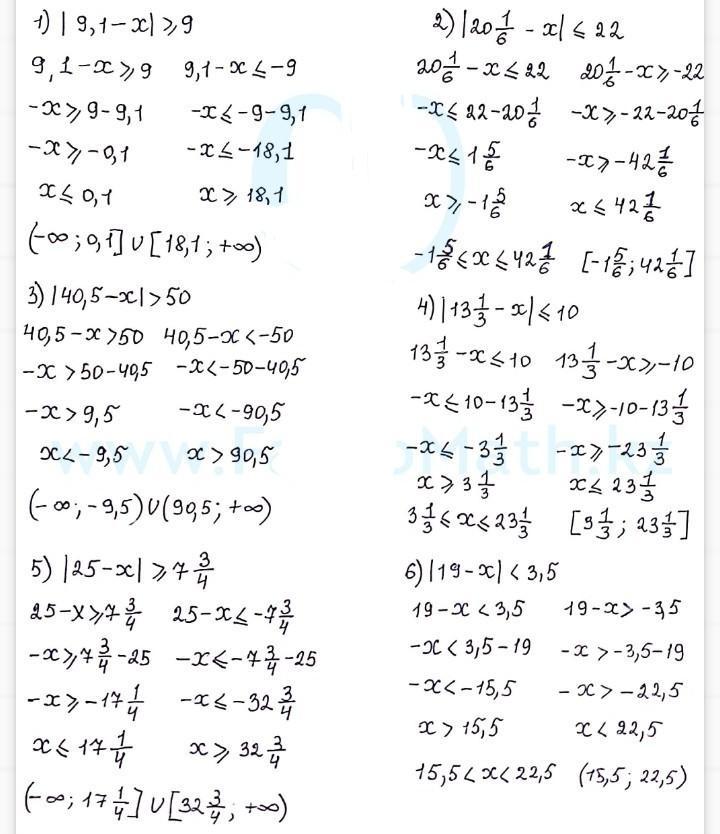 1) |9,1-x| ⩾ 9
9,1-x ⩾ 9 9,1-x ⩽ -9
-x ⩾ 9-9,1 -x ⩽ -9-9,1
-x ⩾ -0,1 -x ⩽ -18,1
x ⩽ 0,1 x ⩾ 18,1
(-∞; 0,1] ∪ [18,1; +∞)
2) |20 1/6 - x| ⩽ 22
20 1/6 - x ⩽ 22 20 1/6 - x ⩾ -22
-x ⩽ 22-20 1/6 -x ⩾ -22-20 1/6
-x ⩽ 1 5/6 -x ⩾ -42 1/6
x ⩾ -1 5/6 x ⩽ 42 1/6
-1 5/6 ⩽ x ⩽ 42 1/6 [-1 5/6; 42 1/6]
3) |40,5-x| > 50
40,5-x > 50 40,5-x < -50
-x > 50-40,5 -x < -50-40,5
-x > 9,5 -x < -90,5
x < -9,5 x > 90,5
(-∞; -9,5) ∪ (90,5; +∞)
4) |13 1/3 - x| ⩽ 10
13 1/3 - x ⩽ 10 13 1/3 - x ⩾ -10
-x ⩽ 10-13 1/3 -x ⩾ -10-13 1/3
-x ⩽ -3 1/3 -x ⩾ -23 1/3
x ⩾ 3 1/3 x ⩽ 23 1/3
3 1/3 ⩽ x ⩽ 23 1/3 [3 1/3; 23 1/3]
5) |25-x| ⩾ 7 3/4
25-x ⩾ 7 3/4 25-x ⩽ -7 3/4
-x ⩾ 7 3/4 - 25 -x ⩽ -7 3/4 - 25
-x ⩾ -17 1/4 -x ⩽ -32 3/4
x ⩽ 17 1/4 x ⩾ 32 3/4
(-∞; 17 1/4] ∪ [32 3/4; +∞)
6) |19-x| < 3,5
19-x < 3,5 19-x > -3,5
-x < 3,5-19 -x > -3,5-19
-x < -15,5 -x > -22,5
x > 15,5 x < 22,5
15,5 < x < 22,5 (15,5; 22,5)